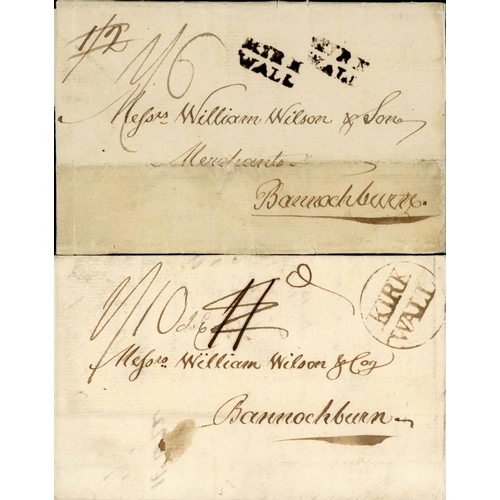 1/2
1/6
KIRK
WALL
KIRK
WALL
Messrs William Wilson & Sons
Merchants
Bannockburn.
1/10
KIRK
WALL
Messrs William Wilson & Coy
Bannockburn